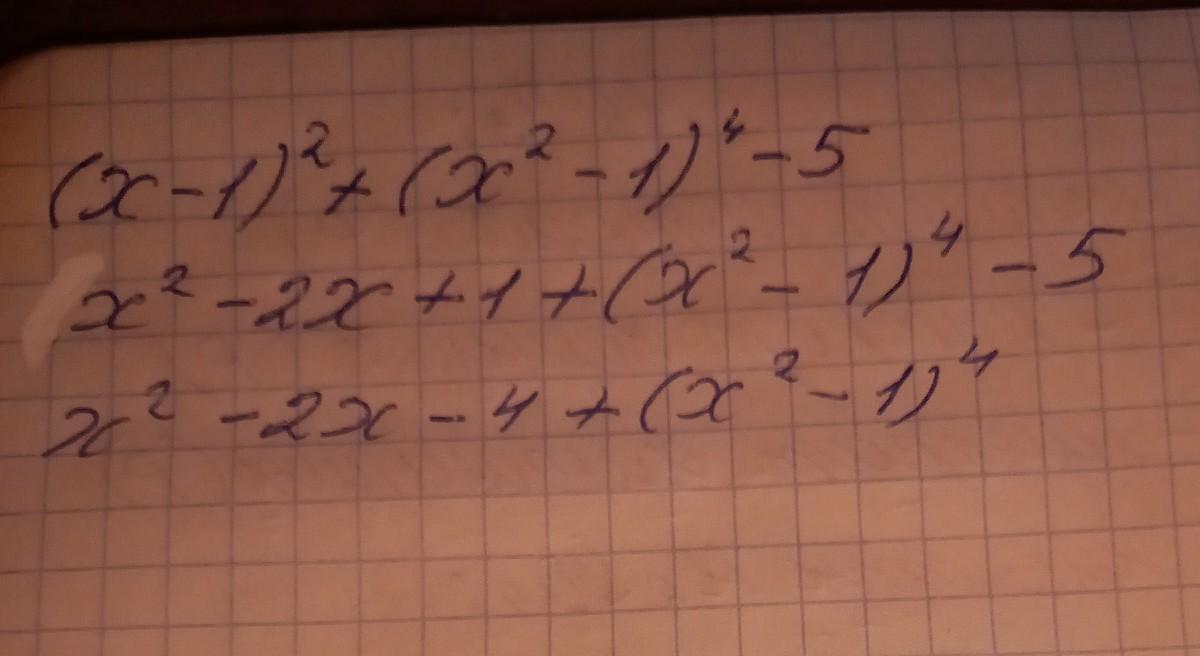 (x-1)² + (x² - 1)⁴ - 5
x² - 2x + 1 + (x² - 1)⁴ - 5
x² - 2x - 4 + (x² - 1)⁴